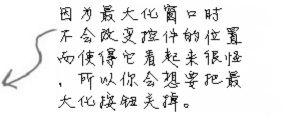 因为最大化窗口时
不会改变控件的位置
而使得它看起来很怪
，所以你会想要把最
大化按钮关掉。